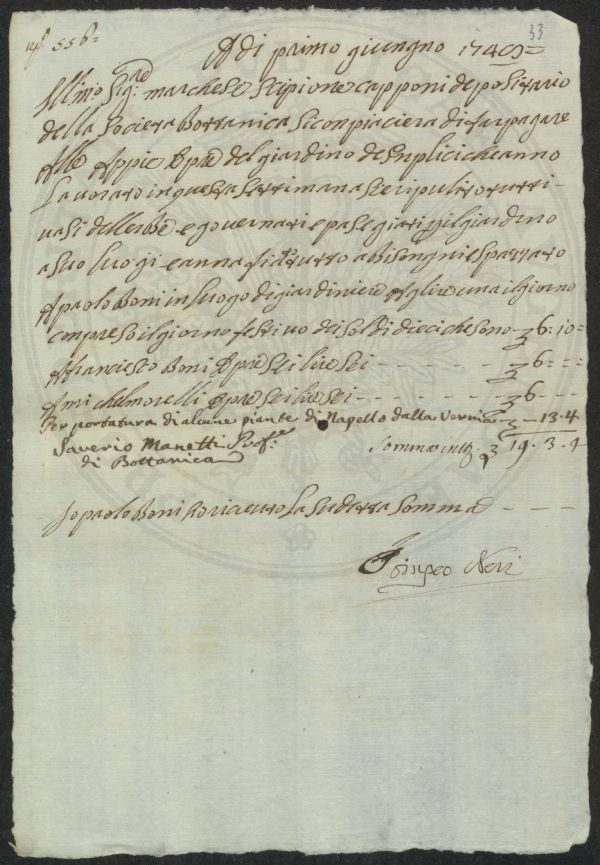 33
556=
A di primo giungno 1749=
Illmo Sigre marchese Scipione capponi depositario
della Societa Bottanica Si conpiacera di far pagare
Alle Appie Opre del giardino de Senplici che anno
Lavorato in questa Settimana Si e ripulito tutti
vasi dellerbe e governati e pasegiati il giardino
a Suo luogi e anna fido tutto a bisongni e Spazzato
A paolo Boni in luogo di giardiniere A lire una il giorno
conpreso il giorno festivo dei Soldi dieci che sono - 6: 10=
A francesco Boni Opre Sei lire Sei - - - - - 6 - - -
A michel morelli Opre Sei lire Sei - - - - - 6 - - -
Per portatura di alcune piante di Napello dalla Vernia - - 13.4
Saverio Manetti Profe
Somma in tt. 19. 3. 4
di Bottanica
Io paolo Boni o ricevuto La Sudetta Somma - - -
Pompeo Neri